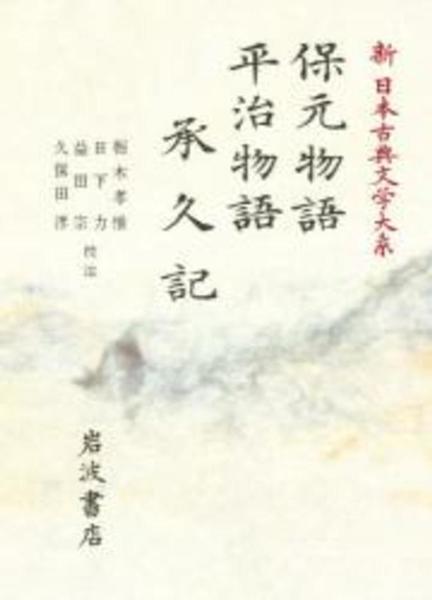 新 日本古典文学大系
保元物語
平治物語
承久記
栃木孝惟
日下力
益田宗
久保田淳
校注
岩波書店